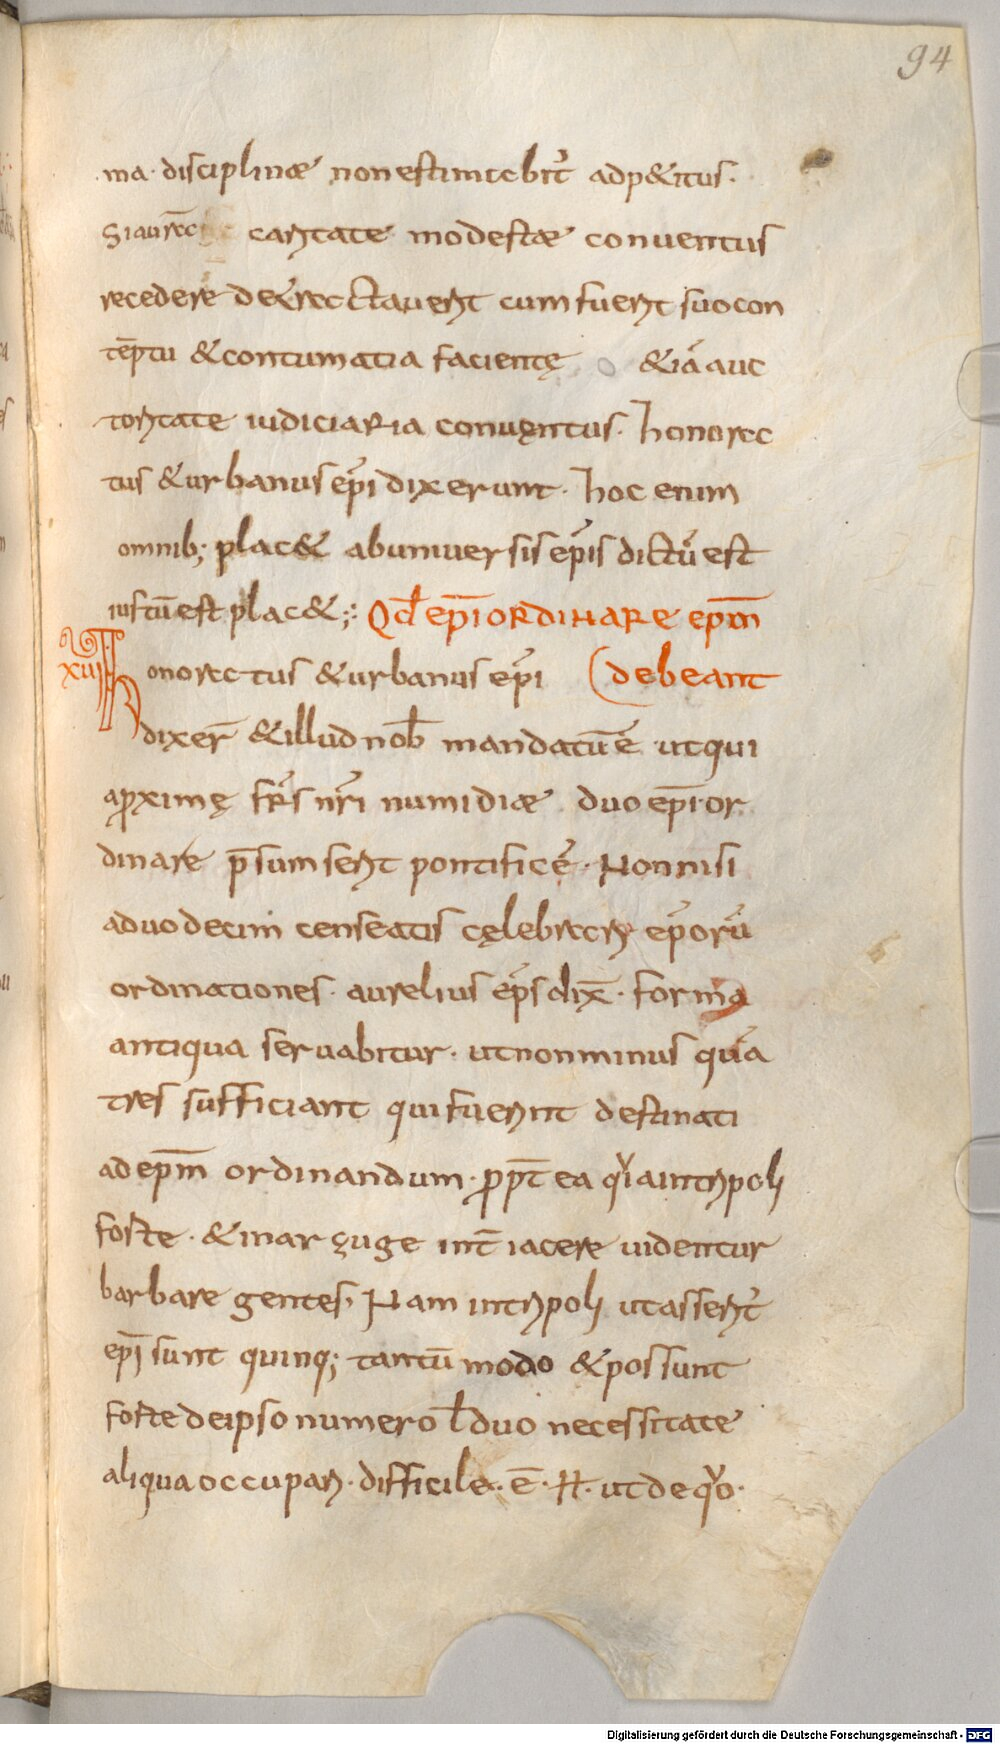 94
ma. disciplinæ non estimabit̄ adp&itus.
Si aurēc caritate modestæ conuentus
recedere detrectauerit cum fuerit suo con
tēptu &contumatia facientę &iā auc
toritate iudiciaria conuęntus. honorec
tus &urbanus ep̄i dixerunt. hoc enim
omnib; plac& abuniuersis ep̄is dictū est
iustū est plac&; Qd̄ ep̄i ORDINARE ep̄m
XUII honorectus &urbanus ep̄i (debeant
dixer̄ &illud nob̄ mandatū ē ut qui
aproximę fr̄s nr̄i numidiæ duo ep̄i or
dinare p̄sumserit pontificē. Non nisi
aduodecim censeatis cęlebrari ep̄orū
ordinationes. aurelius ep̄s dix̄. forma
antiqua seruabitur. ut non minus quā
tres sufficiant qui fuerint destinati
ad ep̄m ordinandum. pp̄t ea qi aintripoli
forte. &inarzuge int̄ iacere uidentur
barbare gentes, Nam intripoli utasserit̄
ep̄i sunt quinq; tantū modo &possunt
forte deipso numero l̄ duo necessitate
aliqua occupari. difficile. ē. H̄. ut de qo.
Digitalisierung gefördert durch die Deutsche Forschungsgemeinschaft - DFG